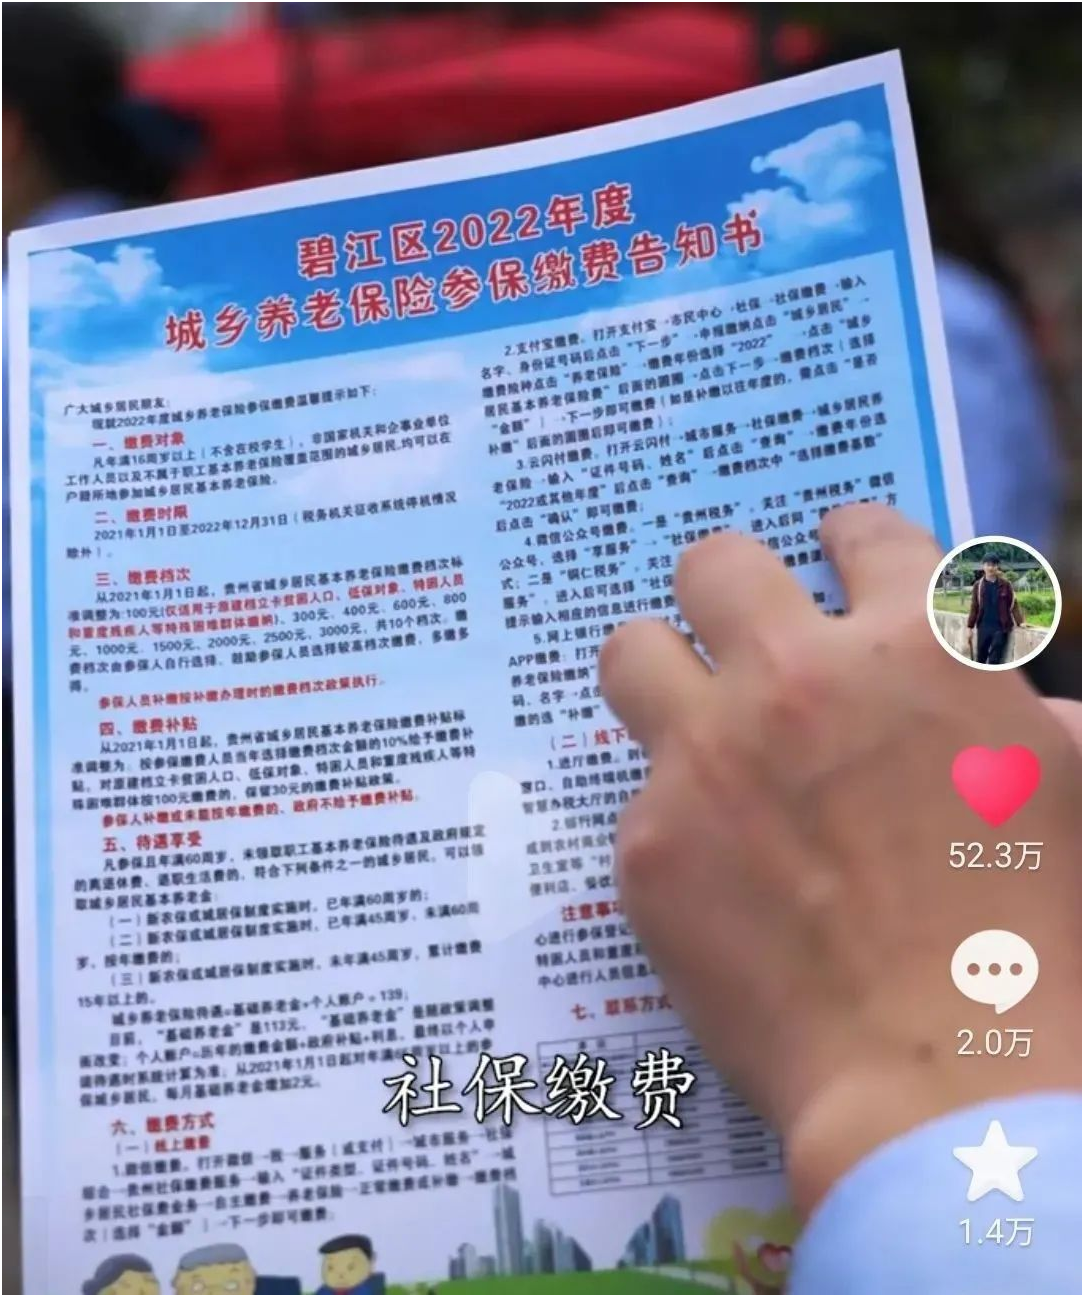 碧江区2022年度
城乡养老保险参保缴费告知书
广大城乡居民朋友：
现就2022年度城乡养老保险参保缴费温馨提示如下：
一、缴费对象
凡年满16周岁以上（不含在校学生），非国家机关和企事业单位
工作人员以及不属于职工基本养老保险覆盖范围的城乡居民,均可以在
户籍所地参加城乡居民基本养老保险。
二、缴费时限
2021年1月1日至2022年12月31日（税务机关征收系统停机情况
除外）。
三、缴费档次
从2021年1月1日起，贵州省城乡居民基本养老保险缴费档次标
准调整为:100元(仅适用于原建档立卡贫困人口、低保对象、特困人员
和重度残疾人等特殊困难群体缴纳)、300元、400元、600元、800
元、1000元、1500元、2000元、2500元、3000元，共10个档次。缴
费档次由参保人自行选择，鼓励参保人员选择较高档次缴费，多缴多
得。
参保人员补缴按补缴办理时的缴费档次政策执行。
四、缴费补贴
从2021年1月1日起，贵州省城乡居民基本养老保险缴费补贴标
准调整为：按参保缴费人员当年选择缴费档次金额的10%给予缴费补
贴。对原建档立卡贫困人口、低保对象、特困人员和重度残疾人等特
殊困难群体按100元缴费的，保留30元的缴费补贴政策。
参保人补缴或未能按年缴费的、政府不给予缴费补贴。
五、待遇享受
凡参保且年满60周岁，未领取职工基本养老保险待遇及政府规定
的离退休费、退职生活费的，符合下列条件之一的城乡居民，可以领
取城乡居民基本养老金：
（一）新农保或城居保制度实施时，已年满60周岁的；
（二）新农保或城居保制度实施时，已年满45周岁，未满60周
岁，按年缴费的；
（三）新农保或城居保制度实施时，未年满45周岁，累计缴费
15年以上的。
城乡养老保险待遇=基础养老金+个人账户÷139；
目前，“基础养老金”是113元，“基础养老金”是随政策调整
而改变；个人账户=历年的缴费金额+政府补贴+利息，最终以个人申
请待遇时系统计算为准；从2021年1月1日起对年满
周岁以上的参
保城乡居民，每月基础养老金增加2元。
六、缴费方式
（一）线上缴费
1.微信缴费。打开微信→我→服务（或支付）→城市服务→社保
综合→贵州社保缴费服务→输入“证件类型、证件号码、姓名”→城
乡居民社保费业务→自主缴费→养老保险→正常缴费或补缴→缴费档
次（选择“金额”）→下一步即可缴费；
2.支付宝缴费。打开支付宝→市民中心→社保→社保缴费→输入
名字、身份证号码后点击“下一步”→申报缴纳点击“城乡居民”→
缴费险种点击“养老保险”→缴费年份选择“2022”→点击“城乡
居民基本养老保险费”后面的圆圈→点击下一步→缴费档次（选择
“金额”）→下一步即可缴费（如是补缴以往年度的，需点击“是否
补缴”后面的圆圈后即可缴费）；
3.云闪付缴费。打开云闪付→城市服务→社保缴费→城乡居民养
老保险→输入“证件号码、姓名”后点击“查询”→缴费年份选
“2022或其他年度”后点击“查询”→缴费档次中“选择缴费基数”
后点击“确认”即可缴费；
4.微信公众号缴费。一是“贵州税务”。关注“贵州税务”微信
公众号，选择“享服务”→“社保
进入后同
方
式；二是“铜仁税务”。关注
微信公众号
服务”，进入后可选择“社保
提示输入相应的信息进行缴费
5.网上银行缴
APP缴费：打开
养老保险缴纳”
码、名字→点击
缴的选“补缴”
（二）线下
1.进厅缴费。到
窗口、自助终端机缴
智慧办税大厅的自
2.银行网点
或到农村商业银
卫生室等“村
便利店、餐饮
注意事项
心进行参保登记
特困人员和重度
中心进行人员信息
七、联系方式
社保缴费
52.3万
2.0万
1.4万